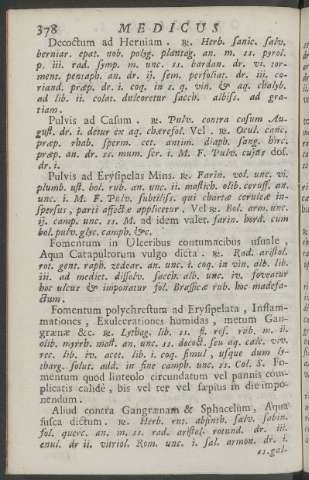 378 MEDICUS
Decoctum ad Herniam. ℞. Herb. sanic. salv.
berniar. epat. nob. polyg. plantag. an. m. ss. pyrol.
p. iii. rad. symp. m. unc. ss. bardan. dr. vi. tor-
ment. pentaph. an. dr. ij. sem. perfoliat. dr. iii. co-
riand. præp. dr. i. coq. in s. q. vin. & aq. chalyb.
ad lib. ii. colat. dulcoretur sacch. albiss. ad gra-
tiam.
Pulvis ad Casum. ℞. Pulv. contra casum Au-
gust. dr. i. detur ex aq. chærefol. Vel. ℞. Ocul. canc.
præp. rhab. sperm. cet. antim. diaph. sang. hirc.
præp. an. dr. ss. mum. scr. i. M. F. Pulv. cujus dos.
dr. i.
Pulvis ad Erysipelas Mins. ℞. Farin. vol. unc. vi.
plumb. ust. bol. rub. an. unc. ii. mastich. olib. ceruss. an.
unc. i. M. F. Pulv. subtiliss. qui chartæ ceruleæ in-
spersus, parti affectæ applicetur. Vel ℞. Bol. arm. unc.
ij. camp. unc. ss. M. ad idem valet. farin. hord. cum
bol. pulv. glyc. camph. &c.
Fomentum in Ulceribus contumacibus usuale,
Aqua Catapultorum vulgo dicta: ℞. Rad. aristol.
rot. gent. raph. zedoar. an. unc. i. coq. in vin. alb. lib.
iii. ad mediet. dissolv. sacch. alb. unc. iv. foveatur
hoc ulcus & imponatur fol. Brassicæ rub. hoc madefa-
ctum.
Fomentum polychrestum ad Erysipelata, Inflam-
mationes, Exulcerationes humidas, metum Gan-
grænæ &c. ℞. Lythag. lib. ss. fl. ros. rub. m. ii.
olib. myrrh. mast. an. unc. ss. decoct. seu aq. calc. viv.
rec. lib. iv. acet. lib. i. coq. simul, usque dum ly-
tharg. solut. add. in fine camph. unc. ss. Col. S. Fo-
mentum quod linteolo circundatum vel pannis com-
plicatis calide, bis vel ter vel sæpius in die impo-
nendum.
Aliud contra Gangrænam & Sphacelum, Aqua
fusca dictum. ℞. Herb. rut. absinth. salv. sabin.
fol. querc. an. m. ss. rad. aristol. rotund. dr. iii.
enul. dr. ii. vitriol. Rom. unc. i. sal. armon. dr. i.
ss. gal-